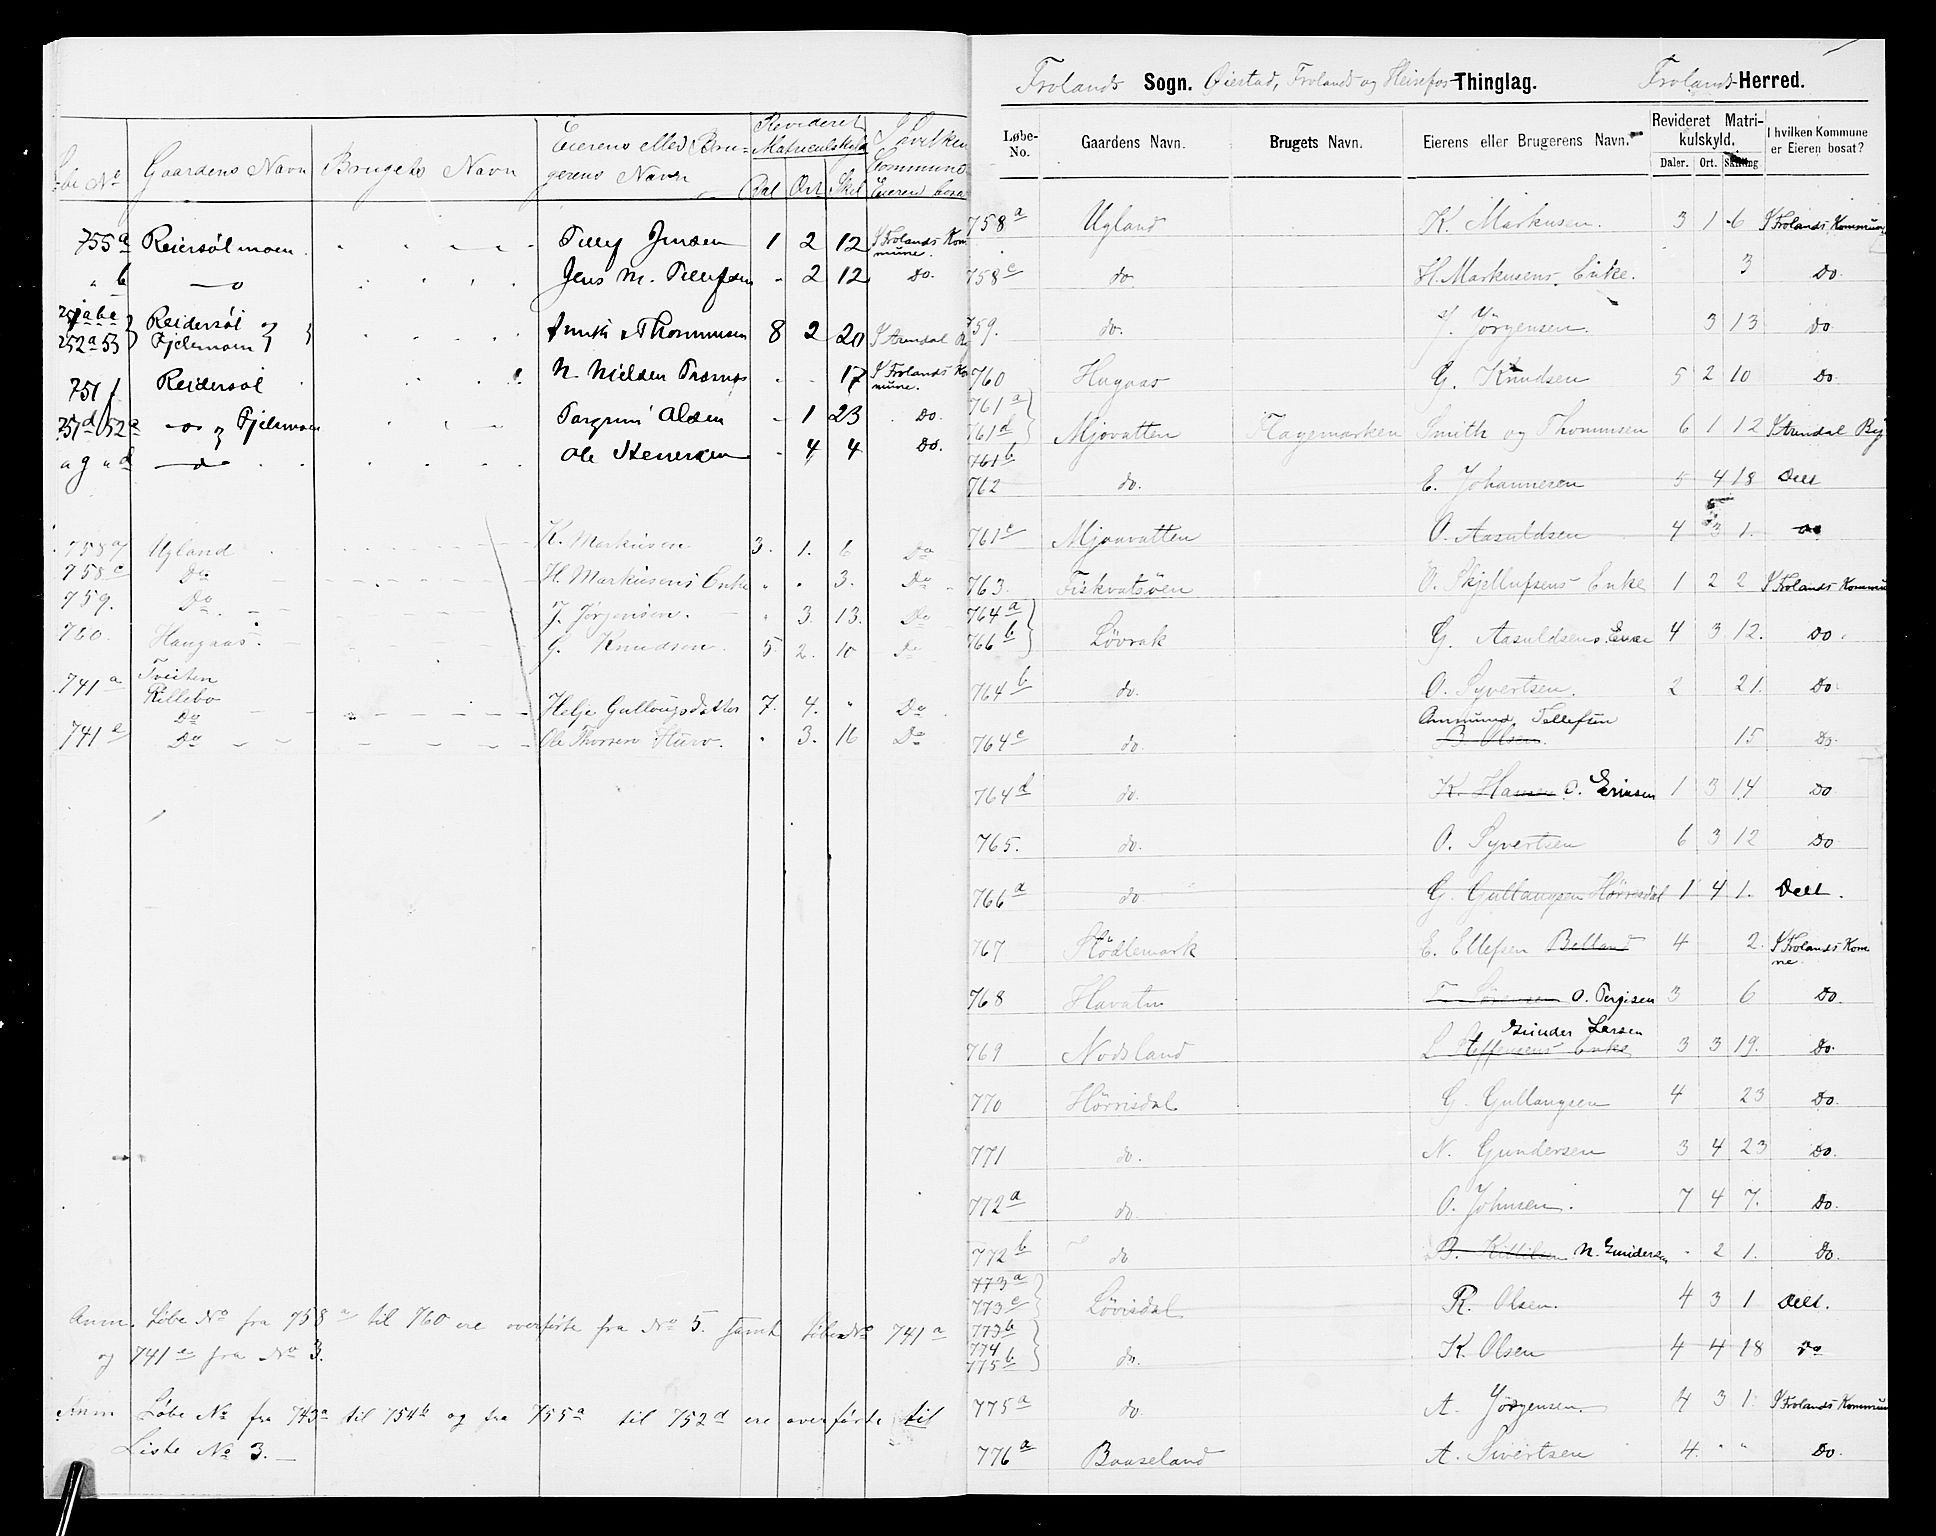 Løbe No Gaardens Navn Brugets Navn Eierens eller Bru-
gerens Navn
Revideret
Matriculskyld
Dal Ort Skil
I hvilken
Commune
Eieren bosat
755a Reiersølmoen Jensen 1 2 12 I Frolands Kom
mune.
" b — Jens M. Tellefsen 2 12 Do.
Reidersøl og
252a 53 Fjelmoen Smith & Thommesen 8 2 20 I Arendal
751f Reidersøl N. Nielsen - - 17 I Frolands Kom
mune.
og Fjelmoen Olsen - 1 23 Do.
" g " d — do Ole - 4 4 Do.
758a Ugland K. Markusen 3. 1. 6 Do
758c Do H. Markusens Enke " " 3. Do
759. Do J. Jørgensen. " 3. 13. Do
760. Haugaas. G. Knudsen. 5 2. 10 Do
741a Tveiten
Rillebo
Do Helje Gullougsdatter 7. 4. " Do
741e Do Ole Thorsen " 3. 16 Do
Anm. Løbe No fra 758a til 760 ere overførte fra No 5. samt Løbe No 741a
og 741e fra No 3.
Anm Løbe No fra 743a til 754b og fra 755a til 752d ere overførte til
Liste No 3. —
Frolands Sogn. Øiestad, Frolands og Heirefos Thinglag. Frolands Herred.
Løbe-
No.
Gaardens Navn. Brugets Navn. Eierens eller Brugerens Navn.
Revideret Matri-
kulskyld.
Daler. Ort. Skilling
I hvilken Kommune
er Eieren bosat?
758a Ugland K. Markusen. 3 1 6 I Frolands Kommune
758c do H. Markusens Enke. 3 Do
759. do. J. Jørgensen. 3 13 Do
760 Hugaas G. Knudsen 5 2 10 Do
761a
761d Mjovatten Flagemarken Smith og Thommesen 6 1 12 I Arendal By
761b
762 do. E. Johannesen 5 4 18 Delt
761c Mjaavatten O. Aasuldsen 4 3 1. do
763. Fiskvatsöen O. Skjellufsens Enke 1 2 2 I Frolands Kommun
764a
766b Lövrak G. Aasuldsens Enke 4 3 12. Do.
764b do. O. Syvertsen. 2 21. Do
Anmund Tellefsen
764c do. B. Olsen. 15 Do.
764d do. K. Hansen O. Eriksen 1 3 14 Do
765. do. O. Syvertsen 6 3 12 Do
766a do G. Gullaugsen Hörrisdal 1 4 1. Delt.
767 Rödlemark E. Ellefsen Belland 4 2. I Frolands Kom
ne.
768 Havatn T. Sörensen O. Tergisen 3 6 Do.
Gunder Larsen
769 Nodsland L Steffensens Enke 3 3 19. Do.
770 Hörrisdal G. Gullaugsen 4 23 Do.
771 do. N. Gundersen 3 4 23 Do.
772a do. O. Johnsen. 7 4 7. Do.
772b do B. Kittilsen N. Gundersen - 2 1. Do.
773a
773c Lövisdal R. Olsen. 4 3 1 Delt.
773b
774
775b do. K. Olsen 4 4 18 Do
775a do. A. Jörgensen. 4 3 1. I Frolands Kommun
776a Baaseland A. Sivertsen 4. " " Do.